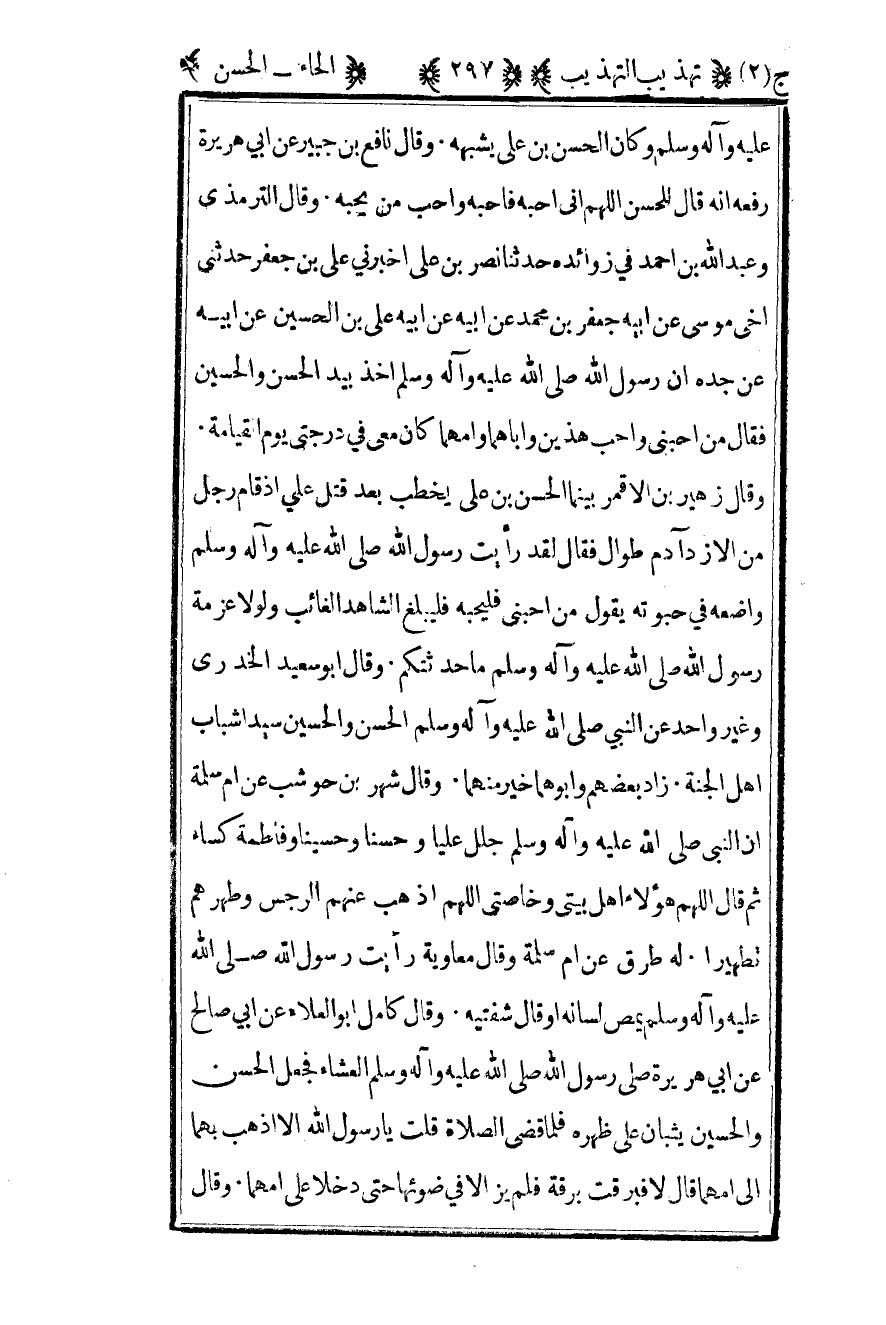 ج(٢) ﴿ تهذيب التهذيب ﴾ ﴿ ٢٩٧ ﴾ ﴿ الحاء ـ الحسن ﴾
عليه وآله وسلم وكان الحسن بن على يشبهه ٠ وقال نافع بن جبير عن ابي هريرة
رفعه انه قال للحسن اللهم انى احبه فاحبه واحب من يحبه ٠ وقال الترمذى
وعبد الله بن احمد في زوائده حدثنا نصر بن على اخبرني على بن جعفر حدثنى
اخى موسى عن ابيه جعفر بن محمد عن ابيه عن ابيه على بن الحسين عن ابيــه
عن جده ان رسول الله صلى الله عليه وآله وسلم اخذ بيد الحسن والحسين
فقال من احبنى واحب هذين واباهما وامهما كان معى في درجتى يوم القيامة ٠
وقال زهير بن الاقمر بينما الحسن بن على يخطب بعد قتل علي اذ قام رجل
من الازد آدم طوال فقال لقد رأيت رسول الله صلى الله عليه وآله وسلم
واضعه في حبوته يقول من احبنى فليحبه فليبلغ الشاهد الغائب ولولا عزمة
رسول الله صلى الله عليه وآله وسلم ما حدثتكم ٠ وقال ابو سعيد الخدرى
وغير واحد عن النبي صلى الله عليه وآله وسلم الحسن والحسين سيدا شباب
اهل الجنة ٠ زاد بعضهم وابوهما خير منهما ٠ وقال شهر بن حوشب عن ام سلمة
ان النبى صلى الله عليه وآله وسلم جلل عليا و حسنا وحسينا وفاطمة كساء
ثم قال اللهم هؤلاء اهل بيتى وخاصتى اللهم اذهب عنهم الرجس وطهرهم
تطهيرا ٠ له طرق عن ام سلمة وقال معاوية رأيت رسول الله صـلى الله
عليه وآله وسلم يمص لسانه اوقال شفتيه ٠ وقال كامل ابو العلاء عن ابي صالح
عن ابي هريرة صلى رسول الله صلى الله عليه وآله وسلم العشاء فجعل الحسن
والحسين يثبان على ظهره فلما قضى الصلاة قلت يا رسول الله الا اذهب بهما
الى امهما قال لا فبرقت برقة فلم يزالا في ضوئها حتى دخلا على امهما ٠ وقال